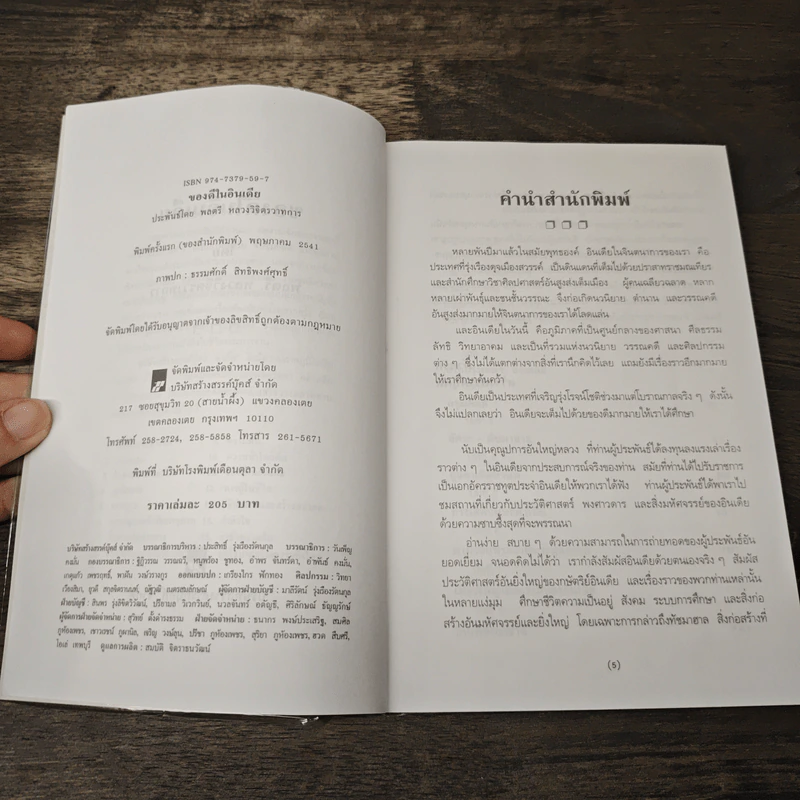 ISBN 974-7379-59-7
ของดีในอินเดีย
ประพันธ์โดย พลตรี หลวงวิจิตรวาทการ
พิมพ์ครั้งแรก (ของสำนักพิมพ์) พฤษภาคม 2541
ภาพปก : ธรรมศักดิ์ สิทธิพงศ์ศุทธิ์
จัดพิมพ์โดยได้รับอนุญาตจากเจ้าของลิขสิทธิ์ถูกต้องตามกฎหมาย
จัดพิมพ์และจัดจำหน่ายโดย
บริษัทสร้างสรรค์บุ๊คส์ จำกัด
217 ซอยสุขุมวิท 20 (สายน้ำผึ้ง) แขวงคลองเตย
เขตคลองเตย กรุงเทพฯ 10110
โทรศัพท์ 258-2724, 258-5858 โทรสาร 261-5671
พิมพ์ที่ บริษัทโรงพิมพ์เดือนตุลา จำกัด
ราคาเล่มละ 205 บาท
บริษัทสร้างสรรค์บุ๊คส์ จำกัด บรรณาธิการบริหาร : ประสิทธิ์ รุ่งเรืองรัตนกุล บรรณาธิการ : วันเพ็ญ
คงมั่น กองบรรณาธิการ : ฐิฏิวรรณ วรรณชวี, หนูพร้อง ชูทอง, อำพร จันทร์ดา, อำพันธ์ คงมั่น,
เกตุแก้ว เพชรฤทธิ์, พาฝัน วงษ์วรากูร ออกแบบปก : เกรียงไกร พักทอง ศิลปกรรม : วิทยา
เวียงสิมา, ผู้จัดการฝ่ายบัญชี : มาลีรัตน์ รุ่งเรืองรัตนกุล
ฝ่ายบัญชี : นวลจันทร์ อตัญธี, ศิริลักษณ์ ธัญญรักษ์
ผู้จัดการฝ่ายจัดจำหน่าย : สุวิทย์ ตั้งดำรงธรรม ฝ่ายจัดจำหน่าย : ธนากร พงษ์ประเสริฐ, สมศิล
ภูห้องเพชร, เจริญ วงษ์ลุน, ปรีชา ภูห้องเพชร, สุริยา ภูห้องเพชร,
เทพบุรี ดูแลการผลิต : สมบัติ จิตราธนวัฒน์
คำนำสำนักพิมพ์
❐ ❐ ❐
หลายพันปีมาแล้วในสมัยพุทธองค์ อินเดียในจินตนาการของเรา คือ
ประเทศที่รุ่งเรืองดุจเมืองสวรรค์ เป็นดินแดนที่เต็มไปด้วยปราสาทราชมณเฑียร
และสำนักศึกษาวิชาศิลปศาสตร์อันสูงส่งเต็มเมือง ผู้คนเฉลียวฉลาด หลาก
หลายเผ่าพันธุ์และชนชั้นวรรณะ จึงก่อเกิดนวนิยาย ตำนาน และวรรณคดี
อันสูงส่งมากมายให้จินตนาการของเราได้โลดแล่น
และอินเดียในวันนี้ คือภูมิภาคที่เป็นศูนย์กลางของศาสนา ศีลธรรม
ลัทธิ วิทยาอาคม และเป็นที่รวมแห่งนวนิยาย วรรณคดี และศิลปกรรม
ต่าง ๆ ซึ่งไม่ได้แตกต่างจากสิ่งที่เรานึกคิดไว้เลย แถมยังมีเรื่องราวอีกมากมาย
ให้เราศึกษาค้นคว้า
อินเดียเป็นประเทศที่เจริญรุ่งโรจน์โชติช่วงมาแต่โบราณกาลจริง ๆ ดังนั้น
จึงไม่แปลกเลยว่า อินเดียจะเต็มไปด้วยของดีมากมายให้เราได้ศึกษา
นับเป็นคุณูปการอันใหญ่หลวง ที่ท่านผู้ประพันธ์ได้ลงทุนลงแรงเล่าเรื่อง
ราวต่าง ๆ ในอินเดียจากประสบการณ์จริงของท่าน สมัยที่ท่านได้ไปรับราชการ
เป็นเอกอัครราชทูตประจำอินเดียให้พวกเราได้ฟัง ท่านผู้ประพันธ์ได้พาเราไป
ชมสถานที่เกี่ยวกับประวัติศาสตร์ พงศาวดาร และสิ่งมหัศจรรย์ของอินเดีย
ด้วยความซาบซึ้งสุดที่จะพรรณนา
อ่านง่าย สบาย ๆ ด้วยความสามารถในการถ่ายทอดของผู้ประพันธ์อัน
ยอดเยี่ยม จนอดคิดไม่ได้ว่า เรากำลังสัมผัสอินเดียด้วยตนเองจริง ๆ สัมผัส
ประวัติศาสตร์อันยิ่งใหญ่ของกษัตริย์อินเดีย และเรื่องราวของพวกท่านเหล่านั้น
ในหลายแง่มุม ศึกษาชีวิตความเป็นอยู่ สังคม ระบบการศึกษา และสิ่งก่อ
สร้างอันมหัศจรรย์และยิ่งใหญ่ โดยเฉพาะการกล่าวถึงทัชมาฮาล สิ่งก่อสร้างที่
(5)